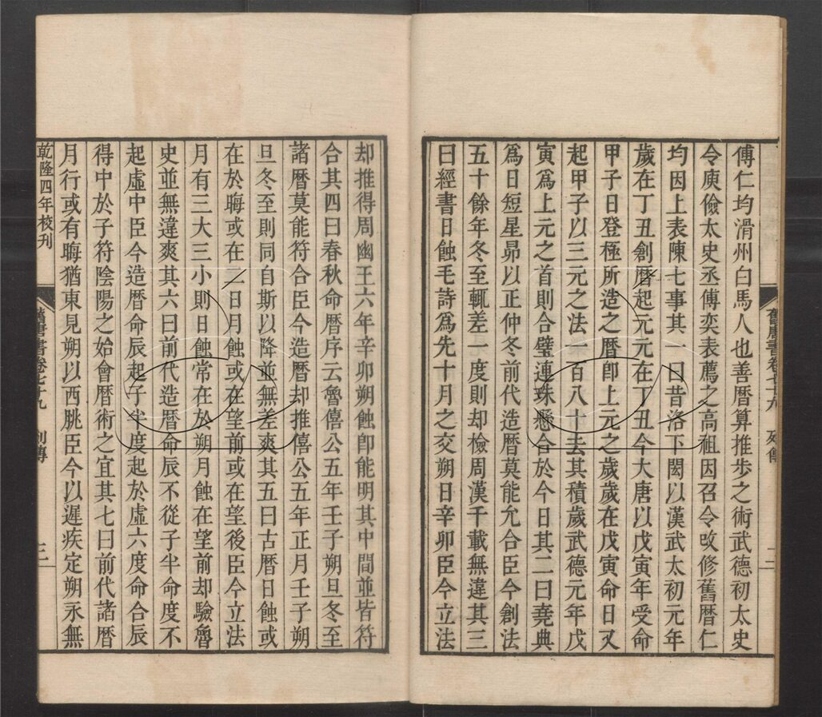 舊唐書卷七十九 列傳 二
傅仁均滑州白馬人也善曆算推步之術武德初太史
令庾儉太史丞傅奕表薦之高祖因召令改修舊曆仁
均因上表陳七事其一曰昔洛下閎以漢武太初元年
歲在丁丑創曆起元元在丁丑今大唐以戊寅年受命
甲子日登極所造之曆卽上元之歲歲在戊寅命日又
起甲子以三元之法一百八十去其積歲武德元年戊
寅爲上元之首則合璧連珠懸合於今日其二曰堯典
爲日短星昴以正仲冬前代造曆莫能允合臣今創法
五十餘年冬至輒差一度則却檢周漢千載無違其三
曰經書日蝕毛詩爲先十月之交朔日辛卯臣今立法
却推得周幽王六年辛卯朔蝕卽能明其中間並皆符
合其四曰春秋命曆序云魯僖公五年壬子朔旦冬至
諸曆莫能符合臣今造曆却推僖公五年正月壬子朔
旦冬至則同自斯以降並無差爽其五曰古曆日蝕或
在於晦或在二日月蝕或在望前或在望後臣今立法
月有三大三小則日蝕常在於朔月蝕在望前却驗魯
史並無違爽其六曰前代造曆命辰不從子半命度不
起虛中臣今造曆命辰起子半度起於虛六度命合辰
得中於子符陰陽之始會曆術之宜其七曰前代諸曆
月行或有晦猶東見朔以西朓臣今以遲疾定朔永無
乾隆四年校刊
舊唐書卷七十九 列傳 三